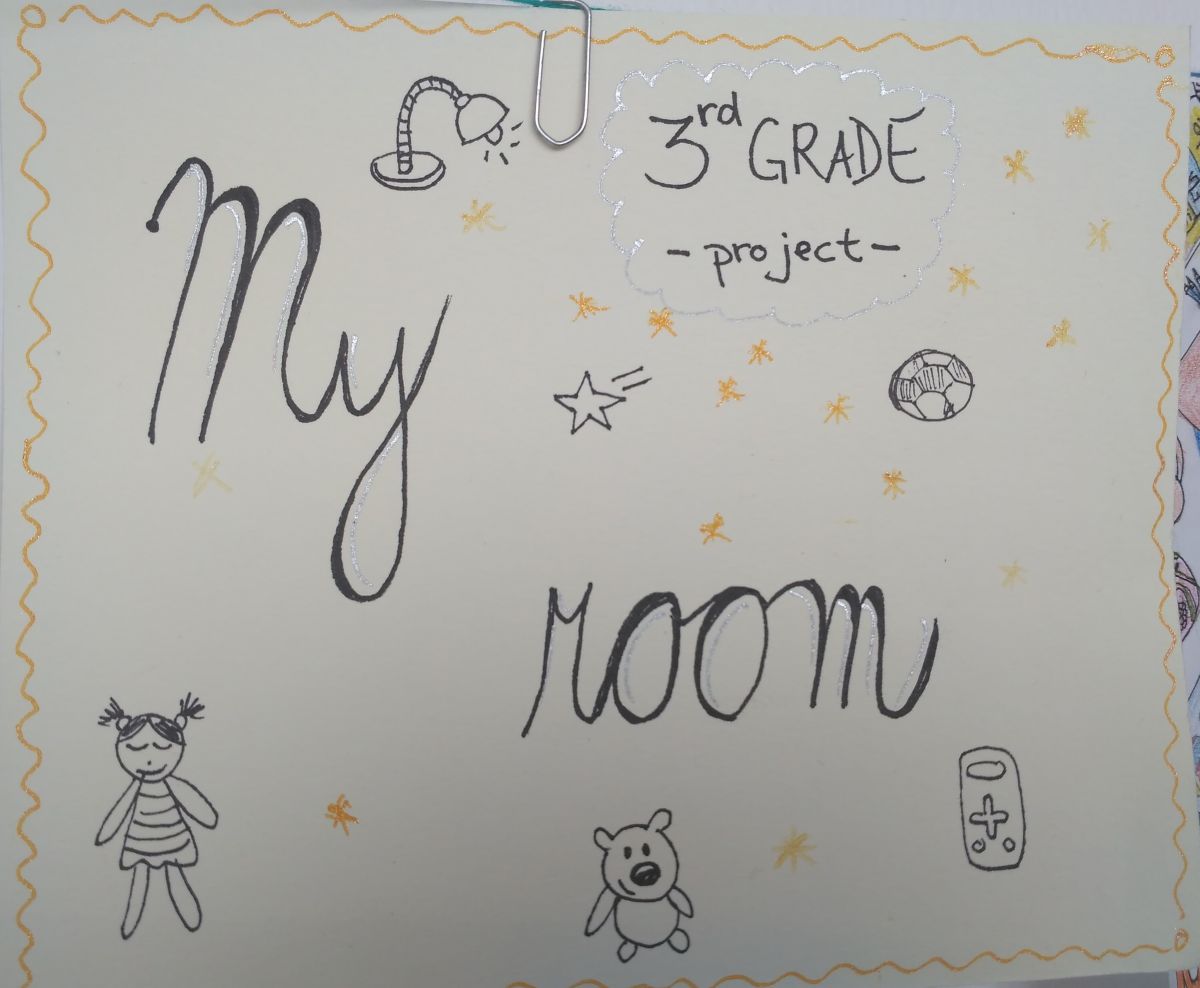 3rd GRADE
- project -
My
room